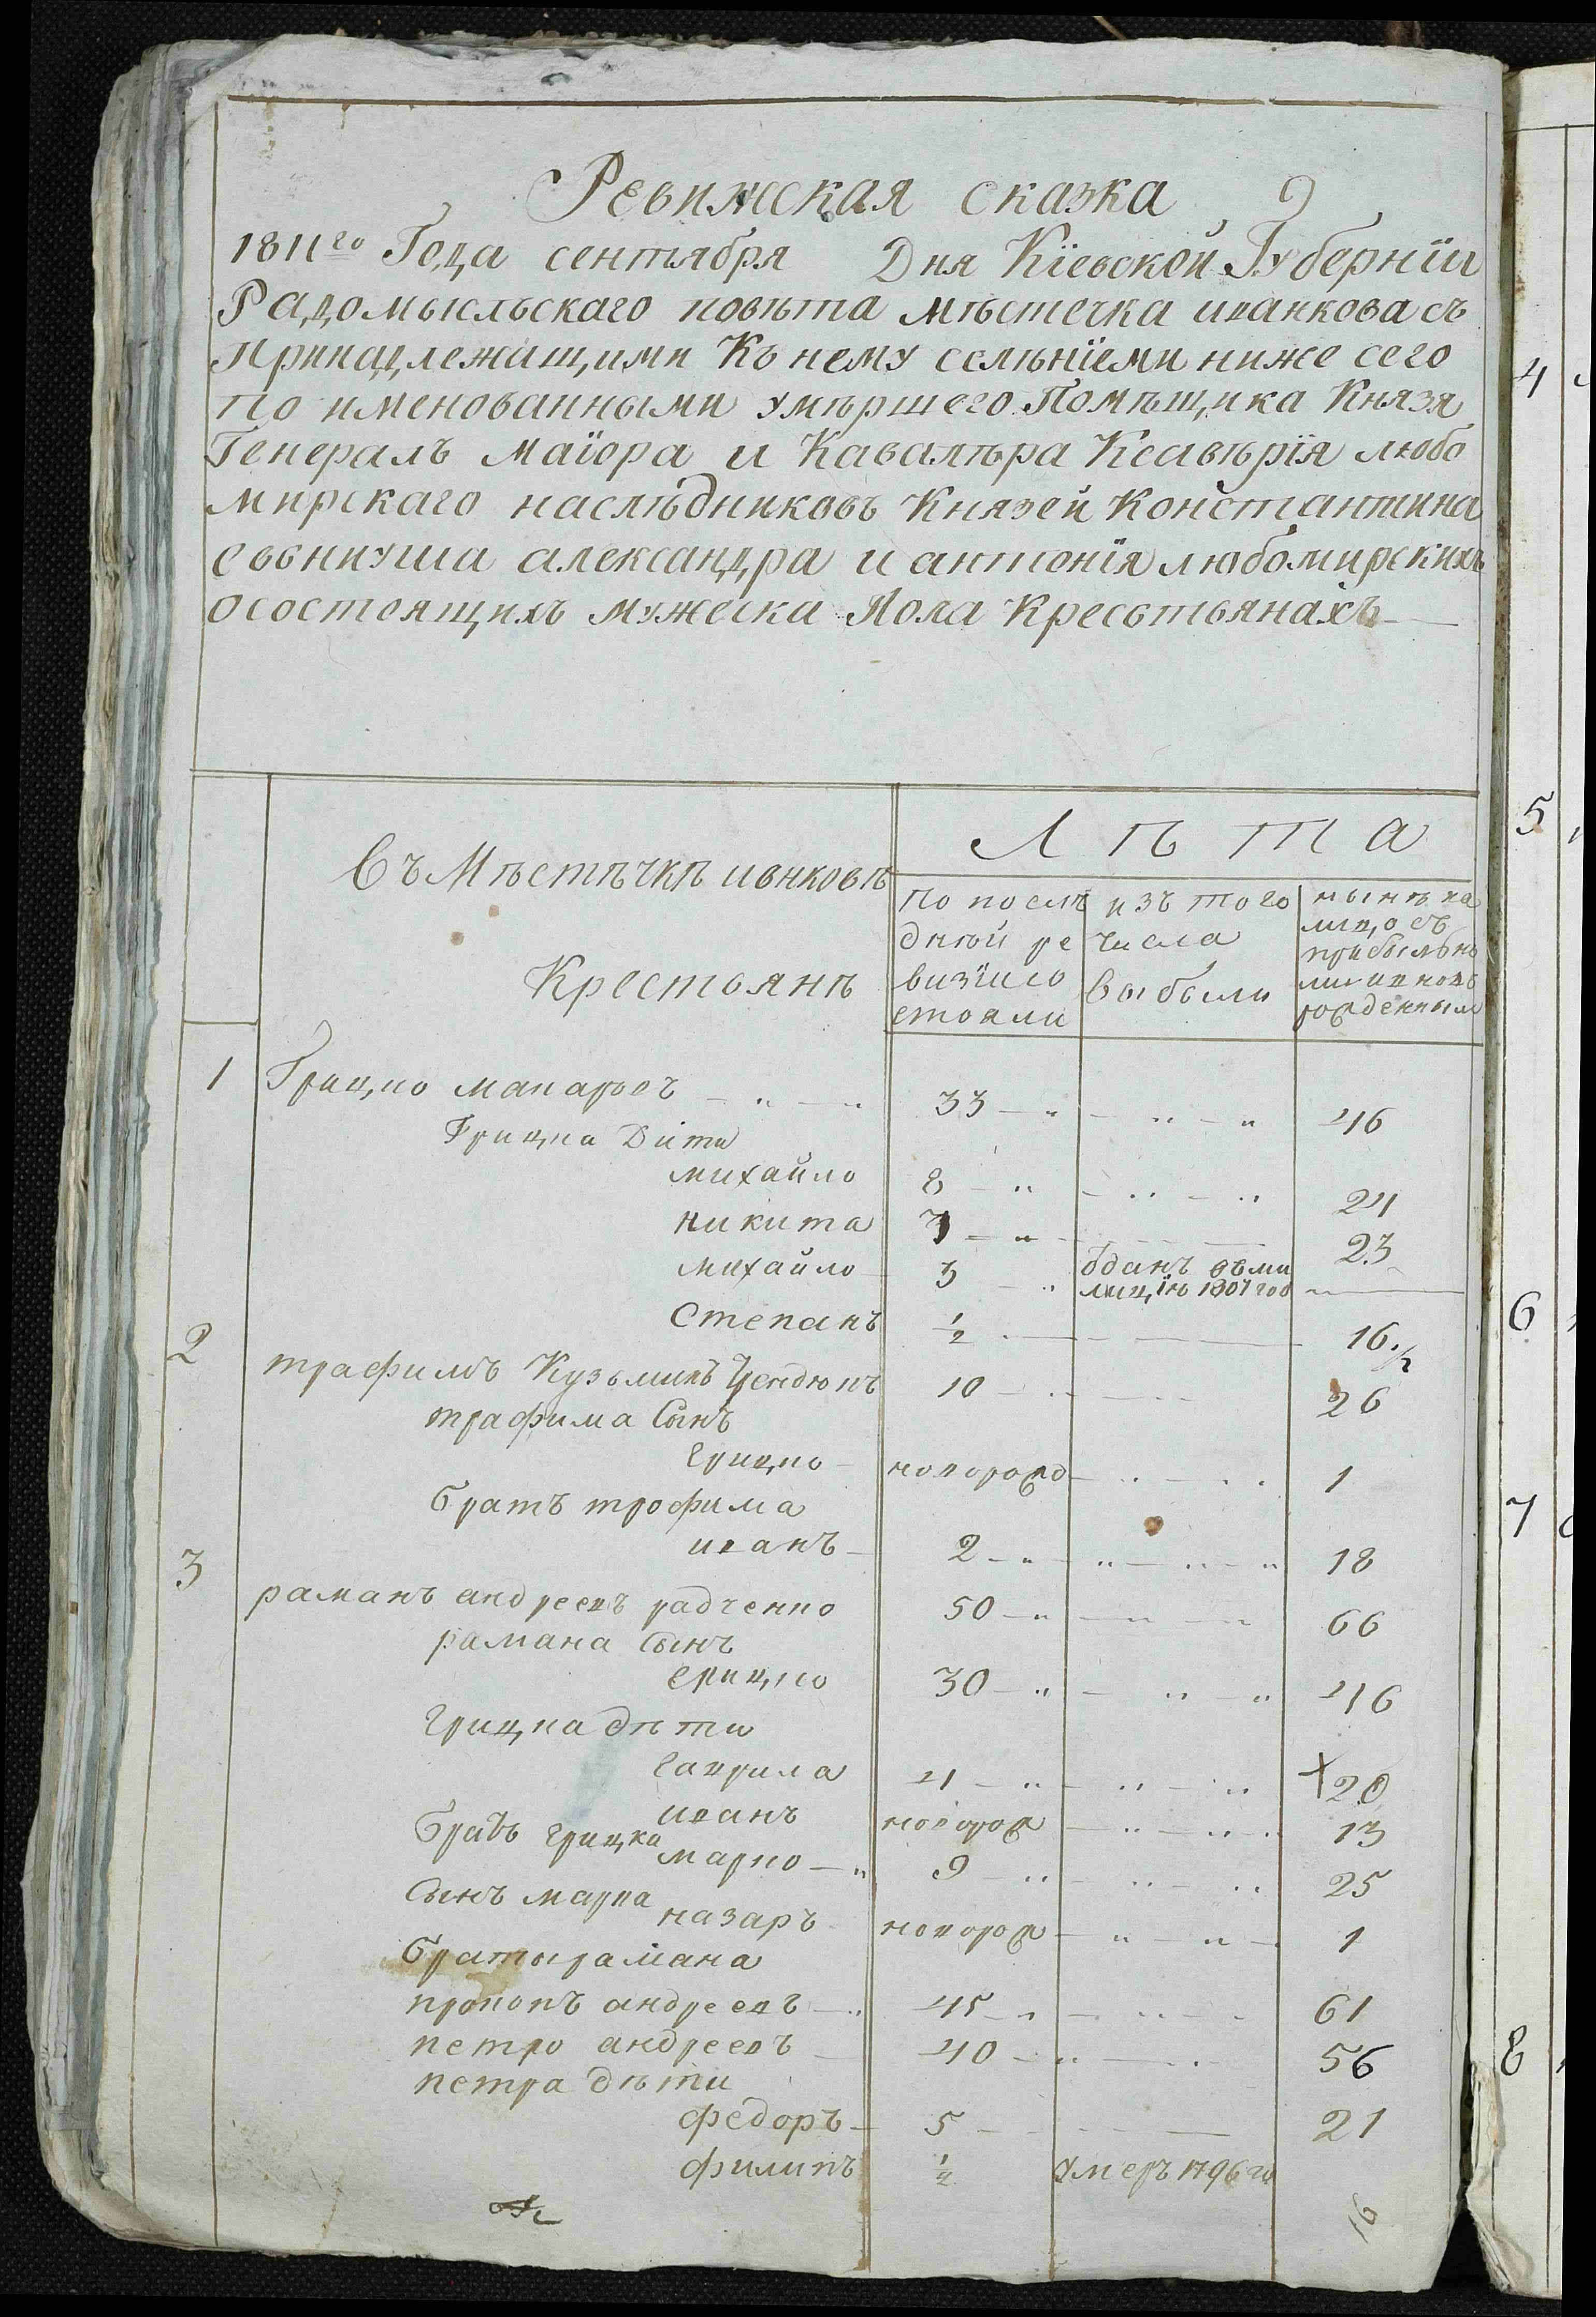 Ревижская сказка
1811го Года сентября Дня Кїевской Губернїи
Радомысльскаго повѣта мѣстечка иванкова съ
Принадлежащими Къ нему селѣнїеми ниже сего
по именованными умѣршего Помѣщика Князя
Генералъ Маїора и Кавалѣра Ксавѣрїя любо
мирскаго наслѣдниковъ Князей Константина
Евениуша александра и антонїя любомирскихъ
осостоящихъ мужеска Пола Кресьтьянахъ
Въ Мѣстѣчкѣ ивнковѣ
Крестьянѣ
Лѣта
по послѣ
дней ре
визїисо
стояли
изъ того
числа
выбыли
нынѣ на
лицо съ
прибылыѣ
ми и новь
рожденным
1 Грицко макаровъ 33 46
Грицка Дити
михайло 8 24
никита 7 23
михайло 3 ѿданъ въми
лицїю 1807 год
Степанъ 1/2 16 1/2
2 трафимъ Кузьминъ 10 26
трафима Сынъ
Грицко новорожд 1
братъ трофима
иванъ 2 18
3 раманъ андреевъ радченко 50 66
рамана Сынъ
грицко 30 46
грицка дѣти
гаврила 4 20
иванъ новорож 13
братъ грицка марко 9 25
Сынъ марка назаръ новорож 1
браты рамана
прокопъ андреевъ 45 61
петро андреевъ 40 56
петра дѣти
федоръ 5 21
филипъ 1/2 умеръ 1796 го
16
4
5
6
7
8